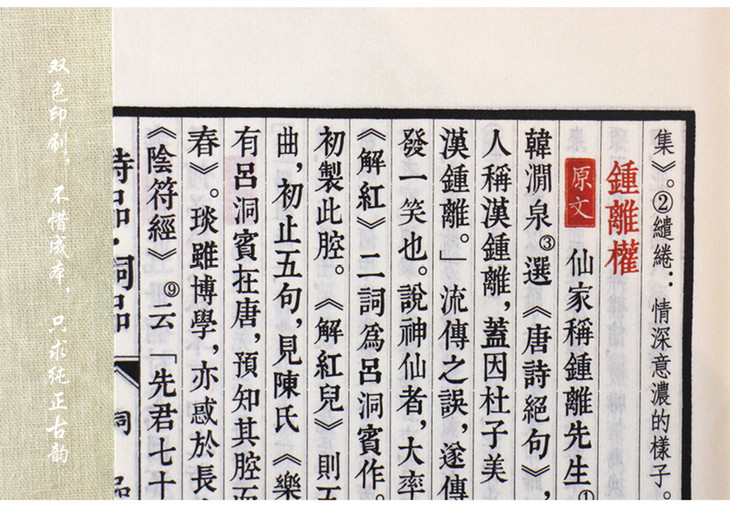 集》。②繾綣：情深意濃的樣子。
鍾離權
原文 仙家稱鍾離先生①
韓澗泉③選《唐詩絕句》，
人稱漢鍾離，蓋因杜子美
漢鍾離。」流傳之誤，遂傳
發一笑也。說神仙者，大率
《解紅》二詞爲呂洞賓作。
初製此腔。《解紅兒》則五
曲，初止五句，見陳氏《樂
有呂洞賓在唐，預知其腔而
春》。琰雖博學，亦惑於長
《陰符經》⑨云「先君七十
詩品·詞品
詞品
双色印刷，不惜成本，只求纯正古韵